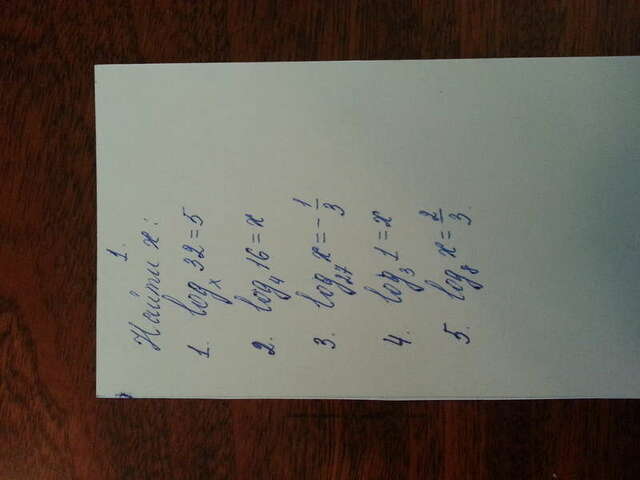 1.
Найти x:
1. log_x 32 = 5
2. log_4 16 = x
3. log_27 x = -1/3
4. log_3 1 = x
5. log_8 x = 2/3.